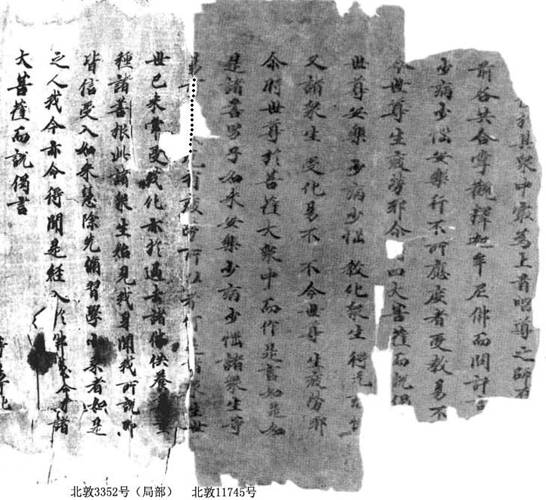 於其衆中最為上首唱導之師在
前各共合掌觀釋迦牟尼佛而問訊言
少病少惱安樂行不所應度者受教易不
令世尊生疲勞耶尒時四大菩薩而說偈
世尊安樂 少病少惱 教化衆生 得无
又諸衆生 受化易不 不令世尊 生疲勞耶
尒時世尊於菩薩大衆中而作是言如是如
是諸善男子如來安樂少病少惱諸衆生等
无有疲勞所以者何是諸衆生世
世已來常受我化亦於過去諸佛供養
種諸善根此諸衆生始見我身聞我所說即
皆信受入如來慧除先修習學小乘者如是
之人我今亦令得聞是經入於佛慧尒時諸
大菩薩而說偈言
北敦3352号（局部） 北敦11745号